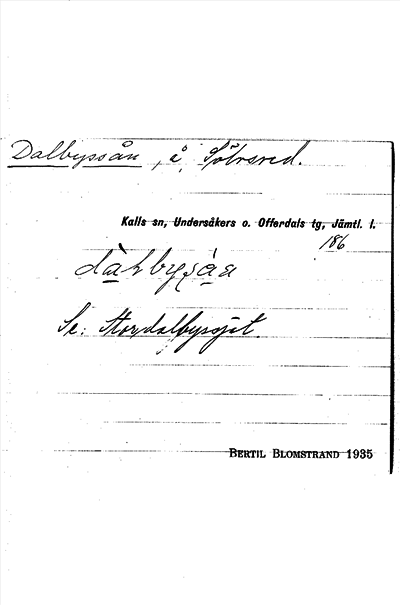 Dalbyssån, å,
Kalls sn, Undersåkers o. Offerdals tg, Jämtl. l.
186
Se: Stordalbyssjöt.
BERTIL BLOMSTRAND 1935